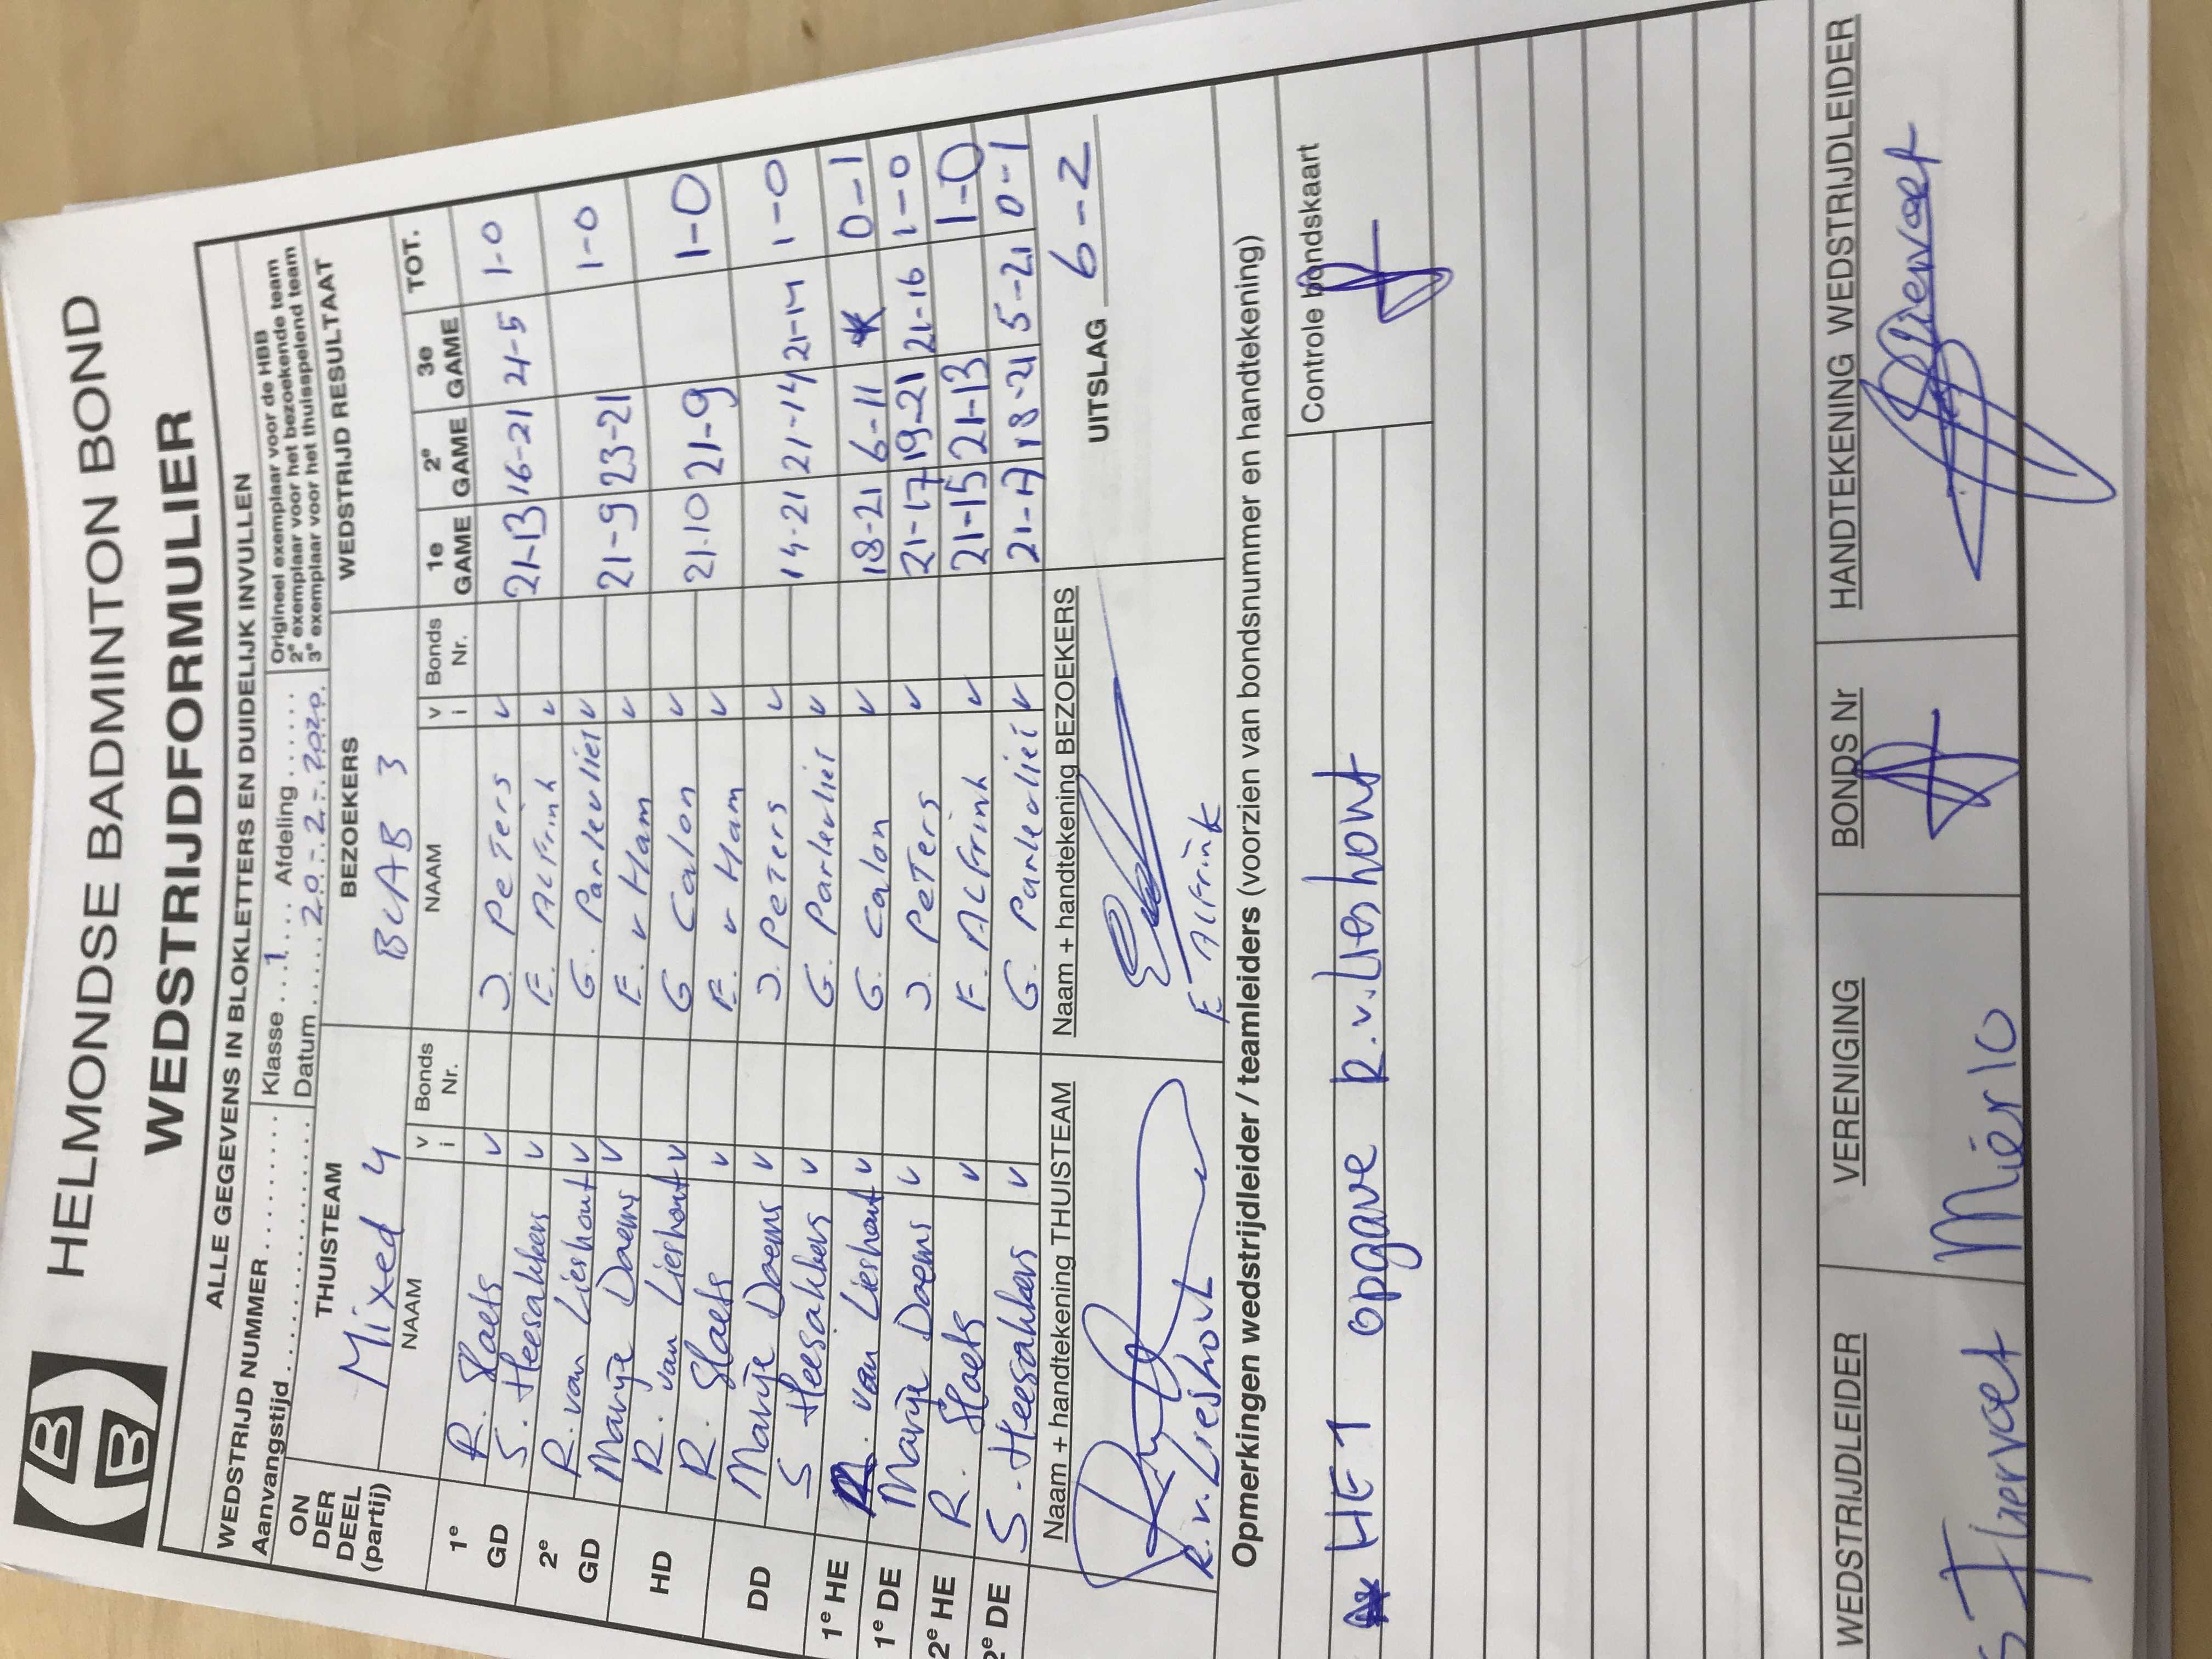 HELMONDSE BADMINTON BOND
WEDSTRIJDFORMULIER
ALLE GEGEVENS IN BLOKLETTERS EN DUIDELIJK INVULLEN
WEDSTRIJD NUMMER
Klasse 1 Afdeling
Origineel exemplaar voor de HBB
2e exemplaar voor het bezoekende team
3e exemplaar voor het thuisspelend team
Aanvangstijd
Datum 20-2-2020
ON DER DEEL (partij) THUISTEAM BEZOEKERS WEDSTRIJD RESULTAAT
Mixed 4 BCAB 3
NAAM v i Bonds Nr. NAAM v i Bonds Nr. 1e GAME 2e GAME 3e GAME TOT.
1e GD R. Slaets v J. PeTers v 21-13 16-21 21-5 1-0
S. Heesakkers v E. ALFrink v
2e GD R. van Lieshout v G. Parlevliet v 21-9 23-21 1-0
Marije Daems v E. v Ham v
HD R. van Lieshout v G Calon v 21-10 21-9 1-0
R. Slaets v E. v Ham v
DD Marije Daems v J. PeTers v 14-21 21-14 21-14 1-0
S Heesakkers v G. Parlevliet v
1e HE R. van Lieshout v G. Calon v 18-21 6-11 * 0-1
1e DE Marije Daems v J. PeTers v 21-17 19-21 21-16 1-0
2e HE R. Slaets v E. ALFrink v 21-15 21-13 1-0
2e DE S. Heesakkers v G Parlevliet v 21-17 18-21 5-21 0-1
Naam + handtekening THUISTEAM Naam + handtekening BEZOEKERS UITSLAG 6-2
R.v. Lieshout E. ALFrink
Opmerkingen wedstrijdleider / teamleiders (voorzien van bondsnummer en handtekening)
Controle bondskaart
* HE1 opgave R.v.Lieshout
WEDSTRIJDLEIDER VERENIGING BONDS Nr HANDTEKENING WEDSTRIJDLEIDER
Mierlo